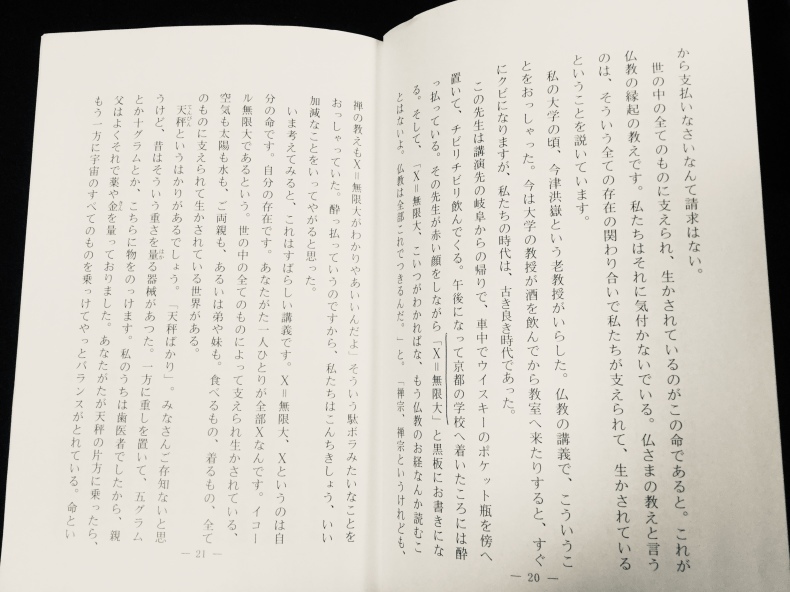 から支払いなさいなんて請求はない。
世の中の全てのものに支えられ、生かされているのがこの命であると。これが
仏教の縁起の教えです。私たちはそれに気付かないでいる。仏さまの教えと言う
のは、そういう全ての存在の関わり合いで私たちが支えられて、生かされている
ということを説いています。
私の大学の頃、今津洪嶽という老教授がいらした。仏教の講義で、こういうこ
とをおっしゃった。今は大学の教授が酒を飲んでから教室へ来たりすると、すぐ
にクビになりますが、私たちの時代は、古き良き時代であった。
この先生は講演先の岐阜からの帰りで、車中でウイスキーのポケット瓶を傍へ
置いて、チビリチビリ飲んでくる。午後になって京都の学校へ着いたころには酔
っ払っている。その先生が赤い顔をしながら「X＝無限大」と黒板にお書きにな
る。そして、「X＝無限大、こいつがわかればな、もう仏教のお経なんか読むこ
とはないよ。仏教は全部これでつきるんだ。」と。「禅宗、禅宗というけれども、
― 20 ―
禅の教えもX＝無限大がわかりやあいいんだよ」そういう駄ボラみたいなことを
おっしゃっていた。酔っ払っていうのですから、私たちはこんちきしょう、いい
加減なことをいってやがると思った。
いま考えてみると、これはすばらしい講義です。X＝無限大、Xというのは自
分の命です。自分の存在です。あなたがた一人ひとりが全部Xなんです。イコー
ル無限大であるという。世の中の全てのものによって支えられ生かされている、
空気も太陽も水も、ご両親も、あるいは弟や妹も。食べるもの、着るもの、全て
のものに支えられて生かされている世界がある。
天秤というはかりがあるでしょう。「天秤ばかり」。みなさんご存知ないと思
うけど、昔はそういう重さを量る器械があつた。一方に重しを置いて、五グラム
とか十グラムとか、こちらに物をのっけます。私のうちは歯医者でしたから、親
父はよくそれで薬や金を量っておりました。あなたがたが天秤の片方に乗ったら、
もう一方に宇宙のすべてのものを乗っけてやっとバランスがとれている。命とい
― 21 ―